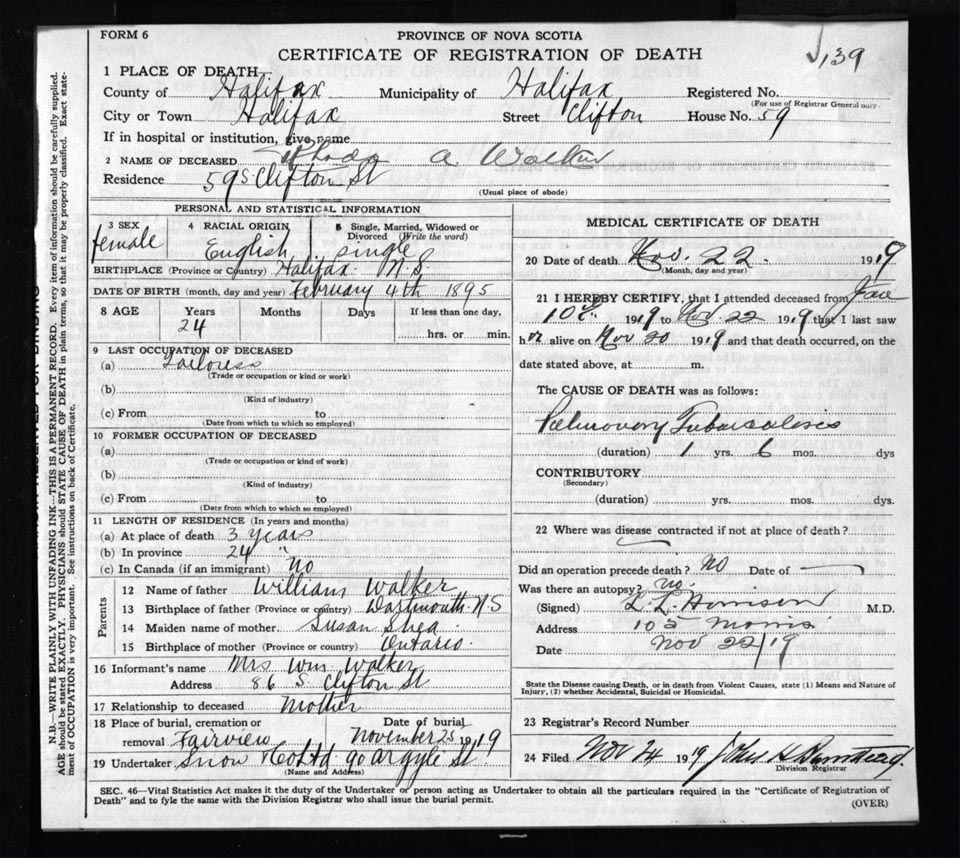 FORM 6
PROVINCE OF NOVA SCOTIA
CERTIFICATE OF REGISTRATION OF DEATH
139
1 PLACE OF DEATH
County of Halifax Municipality of Halifax Registered No.
(For use of Registrar General only)
City or Town Halifax Street Clifton House No. 59
If in hospital or institution, give name
2 NAME OF DECEASED Rhoda A Walker
Residence 59 Clifton St
(Usual place of abode)
PERSONAL AND STATISTICAL INFORMATION
3 SEX 4 RACIAL ORIGIN 5 Single, Married, Widowed or Divorced (Write the word)
female English single
BIRTHPLACE (Province or Country) Halifax N.S.
DATE OF BIRTH (month, day and year) February 4th 1895
8 AGE Years Months Days If less than one day,
24 hrs. or min.
9 LAST OCCUPATION OF DECEASED
(a) Tailoress
(Trade or occupation or kind or work)
(b)
(Kind of industry)
(c) From to
(Date from which to which so employed)
10 FORMER OCCUPATION OF DECEASED
(a)
(Trade or occupation or kind of work)
(b)
(Kind of industry)
(c) From to
(Date from which to which so employed)
11 LENGTH OF RESIDENCE (In years and months)
(a) At place of death 3 years
(b) In province 24 "
(c) In Canada (if an immigrant) no
Parents
12 Name of father William Walker
13 Birthplace of father (Province or country) Dartmouth N S
14 Maiden name of mother Susan Shea
15 Birthplace of mother (Province or country) Ontario
16 Informant's name Mrs Wm Walker
Address 86 S. Clifton St
17 Relationship to deceased Mother
18 Place of burial, cremation or removal Fairview
Date of burial November 25 1919
19 Undertaker Snow & Co Ltd 90 Argyle St
(Name and Address)
MEDICAL CERTIFICATE OF DEATH
20 Date of death Nov. 22. 1919
(Month, day and year)
21 I HEREBY CERTIFY, that I attended deceased from
1919 to Nov. 22 1919 that I last saw
her alive on Nov 20 1919 and that death occurred, on the
date stated above, at m.
The CAUSE OF DEATH was as follows:
Pulmonary Tuberculosis
(duration) 1 yrs. 6 mos. dys
CONTRIBUTORY
(Secondary)
(duration) yrs. mos. dys.
22 Where was disease contracted if not at place of death?
Did an operation precede death? No Date of
Was there an autopsy? no.
(Signed) M.D.
Address 105 Morris
Date Nov 22/19
State the Disease causing Death, or in death from Violent Causes, state (1) Means and Nature of
Injury, (2) whether Accidental, Suicidal or Homicidal.
23 Registrar's Record Number
24 Filed Nov 24 1919 John H
Division Registrar
SEC. 46—Vital Statistics Act makes it the duty of the Undertaker or person acting as Undertaker to obtain all the particulars required in the "Certificate of Registration of
Death" and to fyle the same with the Division Registrar who shall issue the burial permit.
(OVER)
N.B.—WRITE PLAINLY WITH UNFADING INK—THIS IS A PERMANENT RECORD. Every item of information should be carefully supplied.
AGE should be stated EXACTLY. PHYSICIANS should STATE CAUSE OF DEATH in plain terms, so that it may be properly classified. Exact statement
of OCCUPATION is very important. See instructions on back of Certificate.